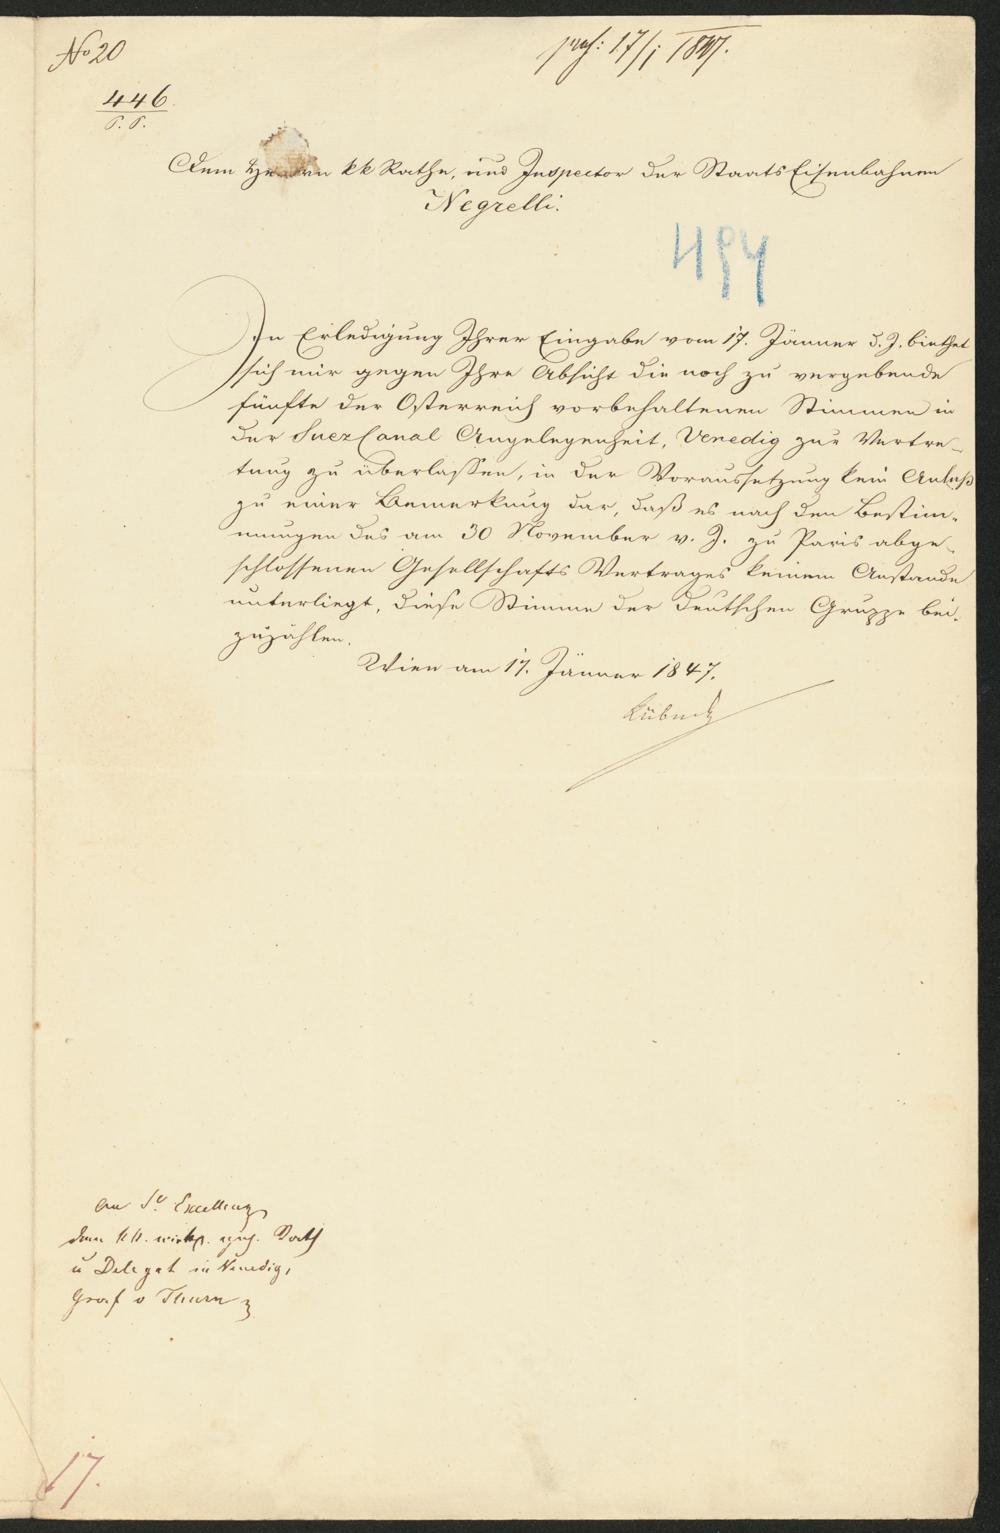 No 20
präs: 17/1 1847.
446
P. P.
Dem Herrn kk Rathe, und Inspector der StaatsEisenbahnen
Negrelli.
494
In Erledigung Ihrer Eingabe vom 17. Jänner d. J. biethet
sich mir gegen Ihre Absicht die noch zu vergebende
fünfte der Österreich vorbehaltenen Stimmen in
der SuezCanal Angelegenheit, Venedig zur Vertre-
tung zu überlassen, in der Voraussetzung kein Anlaß
zu einer Bemerkung dar, daß es nach den Bestim-
mungen des am 30 November v. J. zu Paris abge-
schlossenen Gesellschafts Vertrages keinem Anstande
unterliegt, diese Stimme der deutschen Gruppe bei-
zuzählen.
Wien am 17. Jänner 1847.
Kübeck
An Sr Excellenz
dem kk. wirkl. geh. Rath
u Delegat in Venedig,
Graf v Thurn
17.